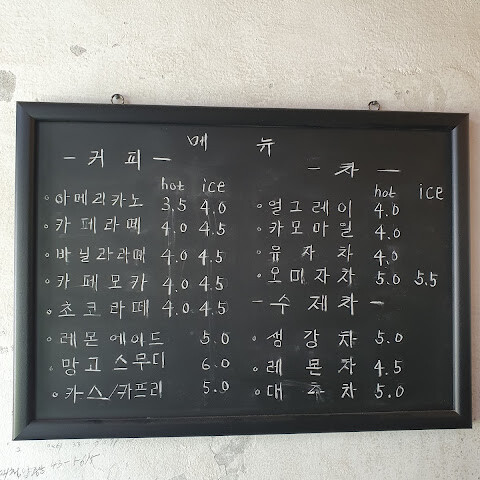 메 뉴
- 커 피 -
hot ice
아메리카노 3.5 4.0
카페라떼 4.0 4.5
바닐라라떼 4.0 4.5
카페모카 4.0 4.5
초코라떼 4.0 4.5
레몬에이드 5.0
망고스무디 6.0
카스/카프리 5.0
- 차 -
hot ice
얼그레이 4.0
카모마일 4.0
유자차 4.0
오미자차 5.0 5.5
- 수제차 -
생강차 5.0
레몬차 4.5
대추차 5.0